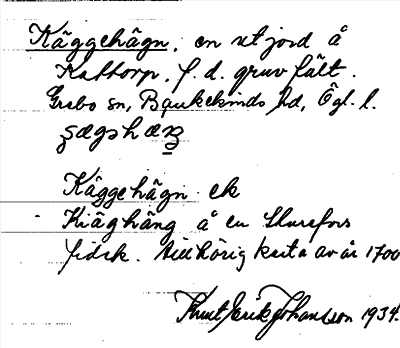 Käggehägn, en utjord å
Kattorp, f. d. gruvfält.
Grebo sn, Bankekinds hd, Ögl. l.
Käggehägn ek
Kiäghäng å en
fidsk. tillhörig karta av år 1700
Knut Erik Johansson 1934.